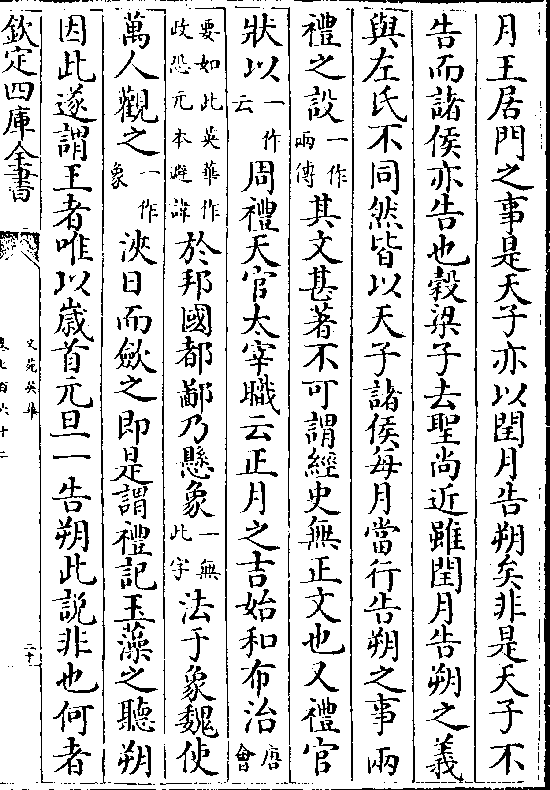 月王居門之事是天子亦以閏月告朔矣非是天子不
告而諸侯亦告也穀梁子去聖尚近雖閏月告朔之義
與左氏不同然皆以天子諸侯每月當行告朔之事兩
禮之設一作兩傳其文甚著不可謂經史無正文也又禮官
狀以一作云周禮天官太宰職云正月之吉始和布治唐會
要如此英華作政恐元本避諱於邦國都鄙乃懸象一無此字法于象魏使
萬人觀之一作象浹日而歛之即是謂禮記玉藻之聽朔
因此遂謂王者唯以歲首元旦一告朔此説非也何者
欽定四庫全書
文苑英華